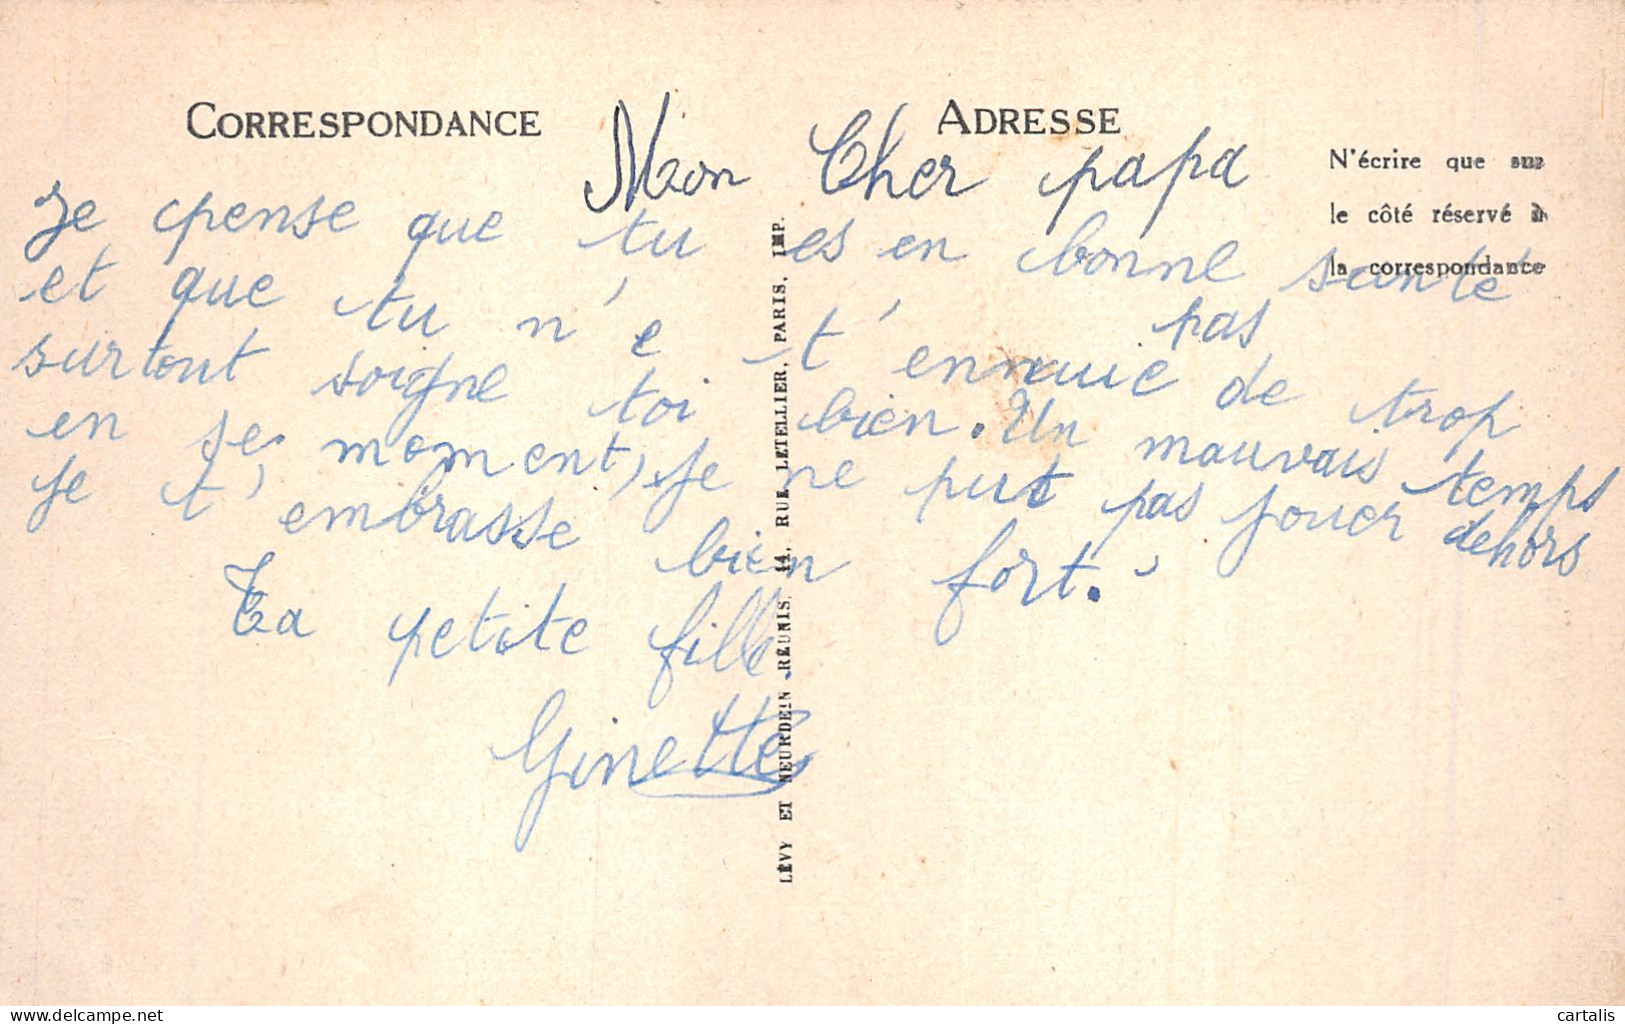 CORRESPONDANCE
ADRESSE
N'écrire que sur
le côté réservé à
la correspondance
Mon Cher papa
Je pense que tu es en bonne santé
et que tu n'e t'ennuie pas de trop
surtout soigne toi bien. Un mauvais temps
en se moment, je ne put pas jouer dehors
Je t'embrasse bien fort.
Ta petite fille.
Ginette
LÉVY ET NEURDEIN RÉUNIS, 44, RUE LETELLIER, PARIS, IMP.
delcampe.net
cartalis